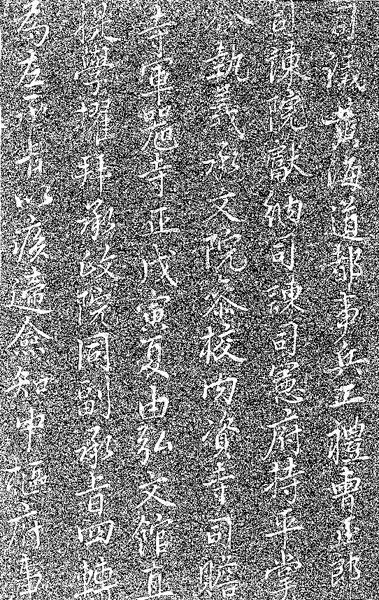 司議黃海道都事兵工禮曹正郎
司諫院獻納司諫司憲府持平掌
令執義承文院參校內資寺司贍
寺軍器寺正戊寅夏由弘文館直
提學擢拜承政院同副承旨四轉
為左承旨以疾遞僉知中樞府事